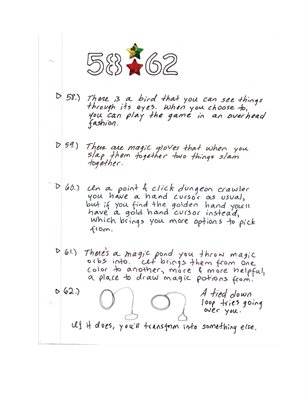 58 62
▷ 58.) There is a bird that you can see things
through its eyes. When you choose to,
you can play the game in an overhead
fashion.
▷ 59.) There are magic gloves that when you
slap them together two things slam
together.
▷ 60.) In a point & click dungeon crawler
you have a hand cursor as usual,
but if you find the golden hand you'll
have a gold hand cursor instead,
which brings you more options to pick
from.
▷ 61.) There's a magic pond you throw magic
orbs into. It brings them from one
color to another, more & more helpful,
a place to draw magic potions from.
▷ 62.) A tied down
loop tries going
over you.
If it does, you'll transform into something else.